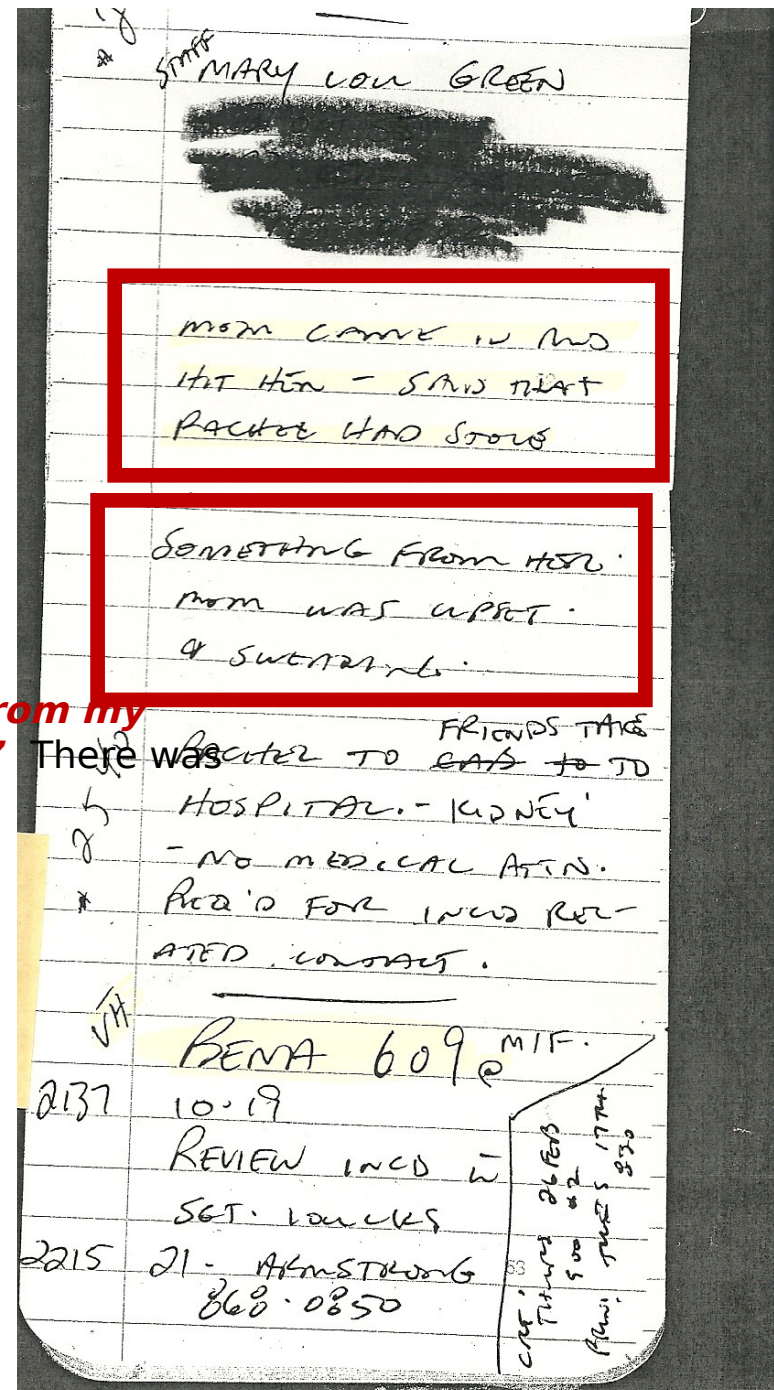 STAFF MARY LOU GREEN
MOM CAME IN AND
HIT HER - SAID THAT
RACHEL HAD STOLE
SOMETHING FROM HER.
MOM WAS UPSET.
& SWEARING.
rom my
There was
FRIENDS TAKE
RACHEL TO CAB to TO
HOSPITAL. - KIDNEY
- NO MEDICAL ATTN.
REQ'D FOR INCID REL-
ATED CONTACT.
VH
BEMA 609 @ M/F.
2137 10-19
REVIEW INCD W
SGT. LOUCKS
2215 21- ARMSTRONG
868-0350
53
THURS 26 FEB
900 #2
TUES 17TH
830